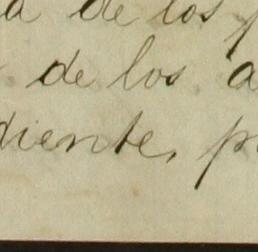 a de los p
de los a
diente, p